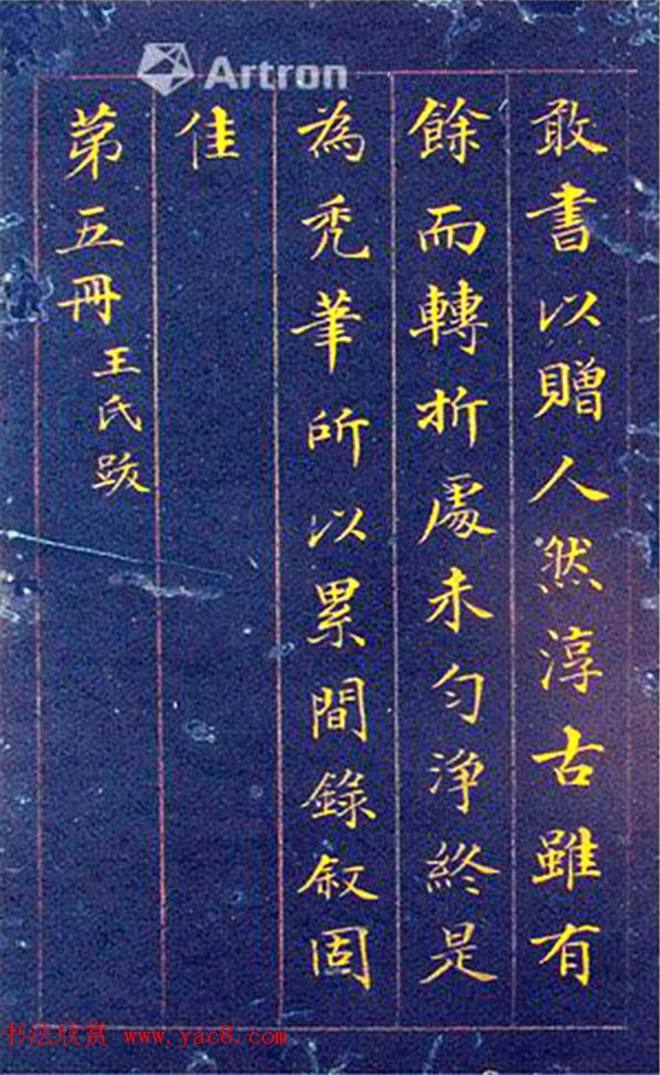 Artron
敢書以贈人然淳古雖有
餘而轉折處未勻淨終是
為禿筆所以累間錄叙固
佳
第五冊 王氏跋
书法欣赏 www.yac8.com